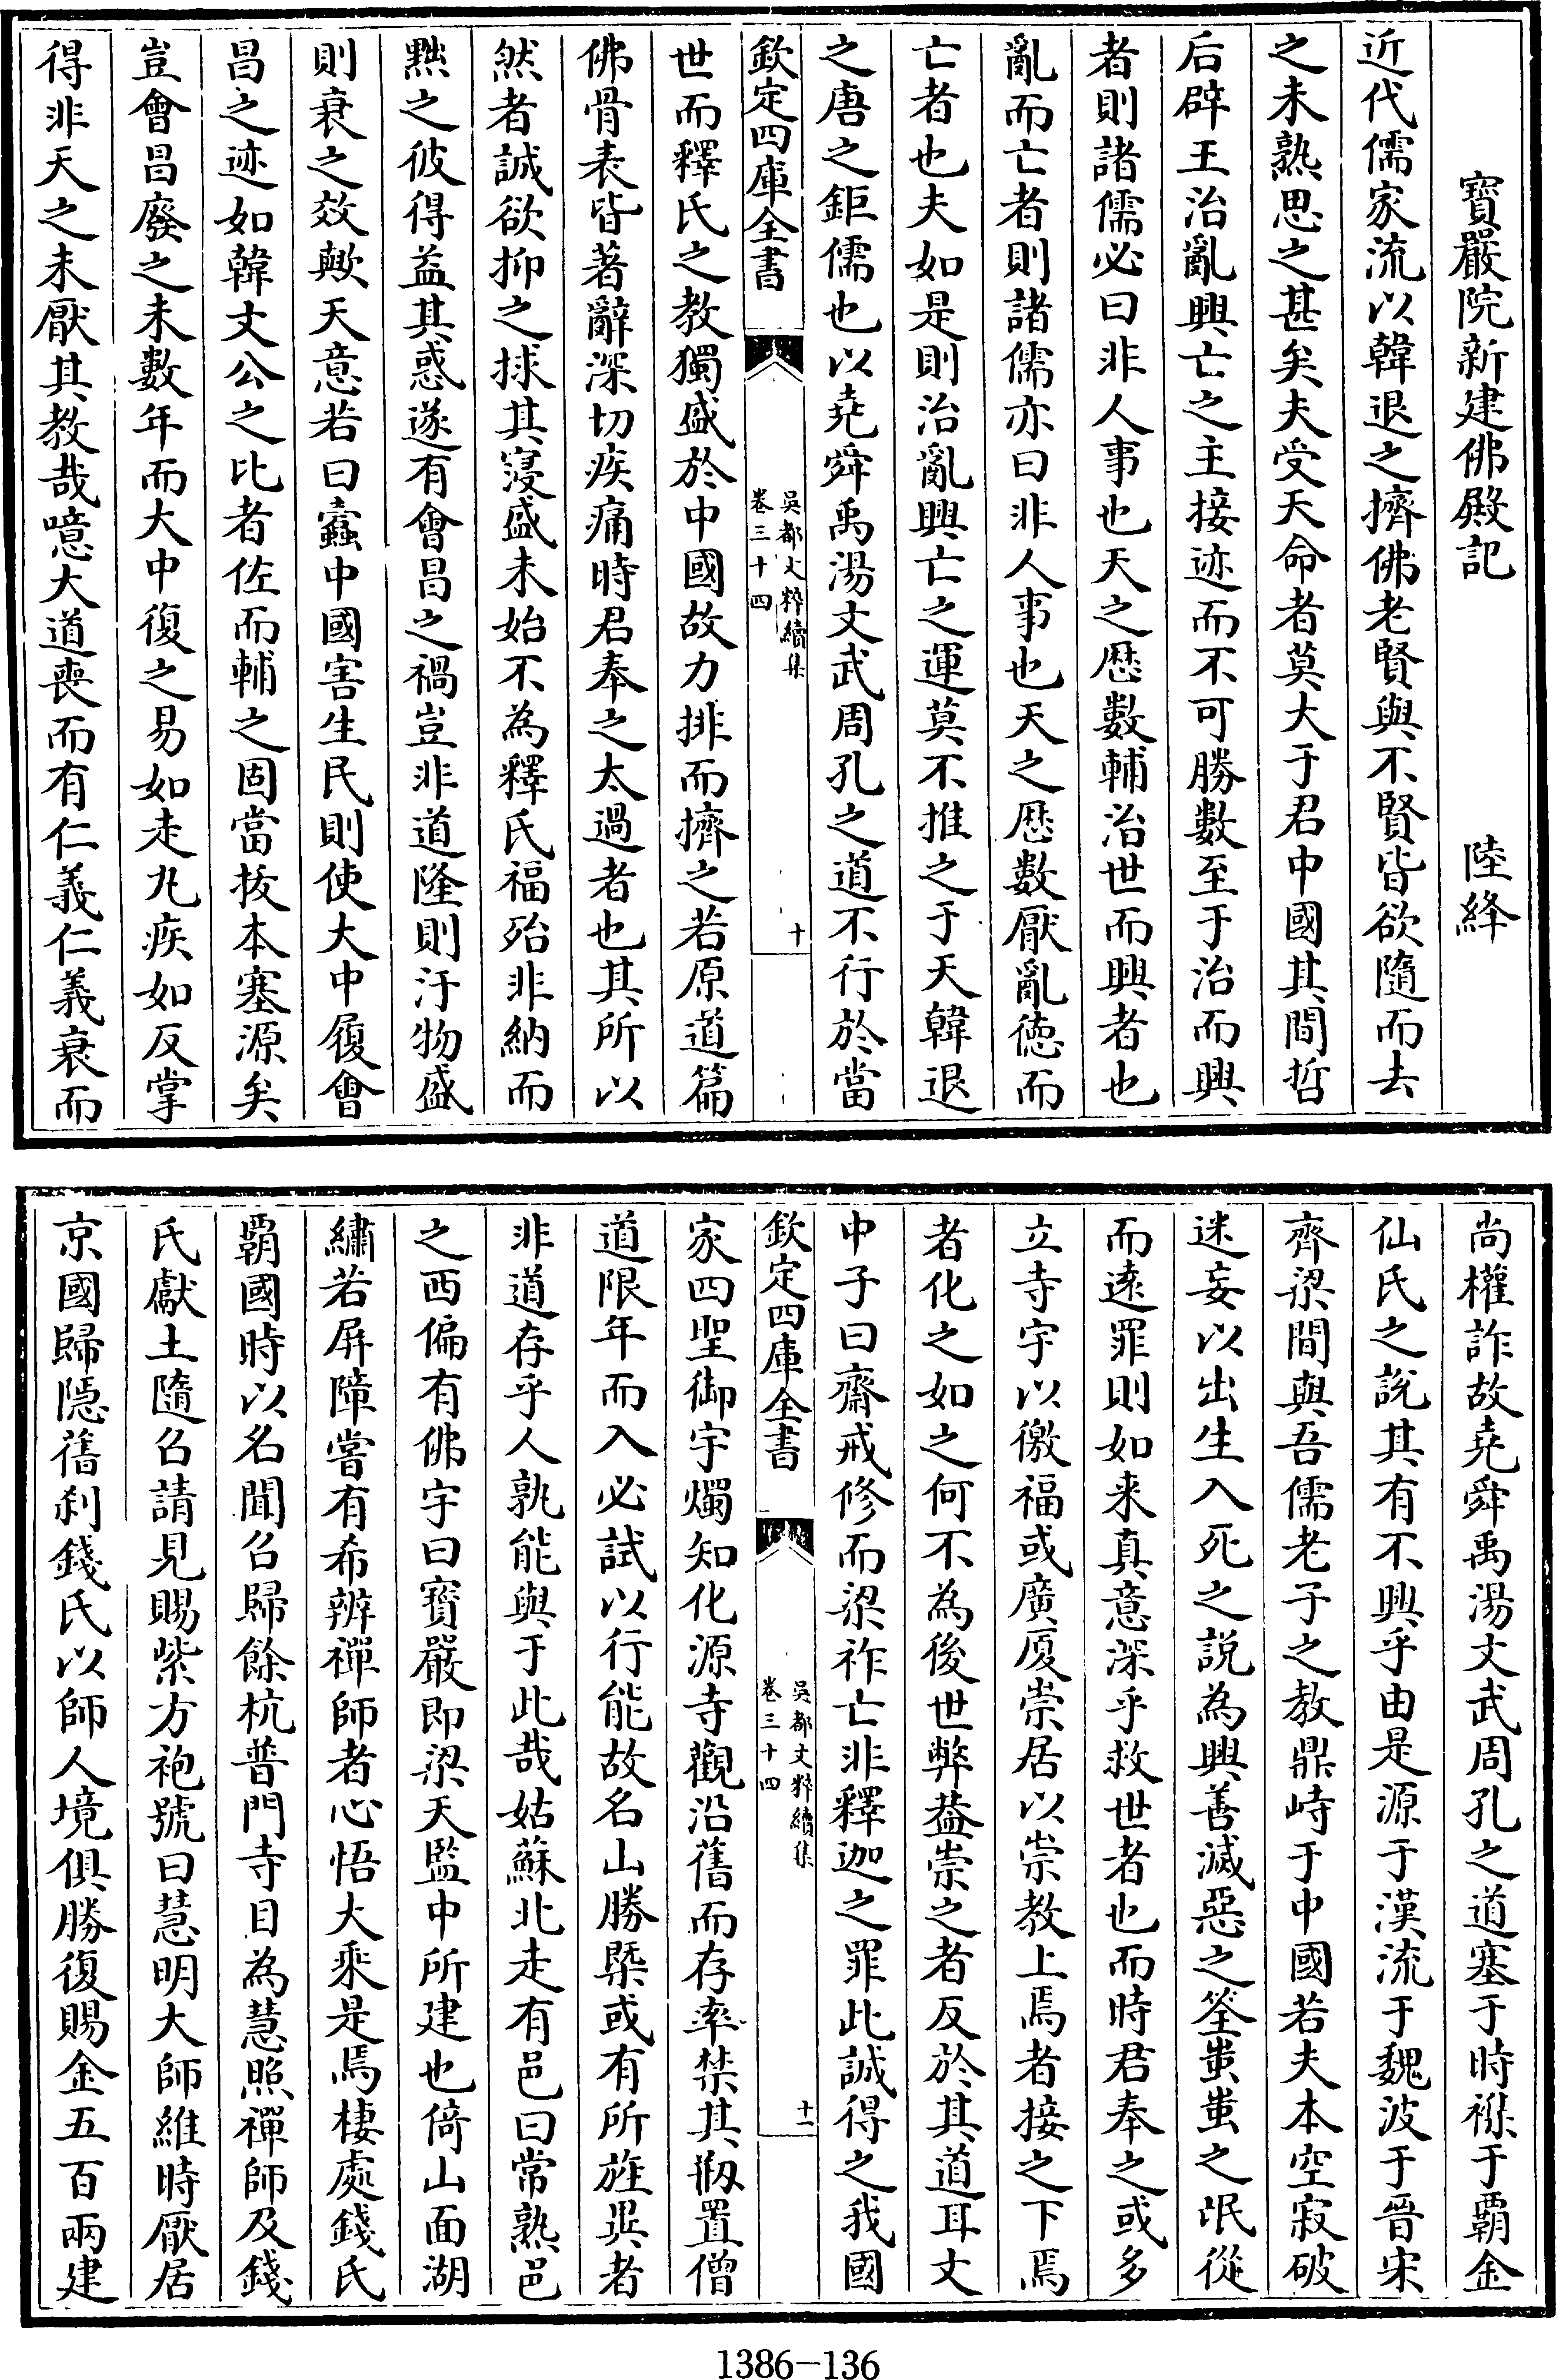 寳嚴院新建佛殿記　陸絳
近代儒家流以韓退之擠佛老賢與不賢皆欲隨而去
之未熟思之甚矣夫受天命者莫大于君中國其間哲
后辟王治亂興亡之主接迹而不可勝數至于治而興
者則諸儒必曰非人事也天之厯數輔治世而興者也
亂而亡者則諸儒亦曰非人事也天之厯數厭亂德而
亡者也夫如是則治亂興亡之運莫不推之于天韓退
之唐之鉅儒也以堯舜禹湯文武周孔之道不行於當
欽定四庫全書
吳都文粹續集
卷三十四
十
世而釋氏之教獨盛於中國故力排而擠之若原道篇
佛骨表皆著辭深切疾痛時君奉之太過者也其所以
然者誠欲抑之捄其寖盛未始不為釋氏福殆非納而
黜之彼得益其惑遂有會昌之禍豈非道隆則汙物盛
則衰之效歟天意若曰蠧中國害生民則使大中履會
昌之迹如韓文公之比者佐而輔之固當拔本塞源矣
豈會昌廢之未數年而大中復之易如走丸疾如反掌
得非天之未厭其教哉噫大道喪而有仁義仁義衰而
尚權詐故堯舜禹湯文武周孔之道塞于時襍于覇金
仙氏之說其有不興乎由是源于漢流于魏波于晉宋
齊梁間與吾儒老子之教鼎峙于中國若夫本空寂破
迷妄以出生入死之說為興善滅惡之筌蚩蚩之氓從
而逺罪則如来真意深乎救世者也而時君奉之或多
立寺宇以徼福或廣厦崇居以崇教上焉者接之下焉
者化之如之何不為後世弊葢崇之者反於其道耳文
中子曰齋戒修而梁祚亡非釋迦之罪此誠得之我國
欽定四庫全書
吳都文粹續集
卷三十四
十一
家四聖御宇燭知化源寺觀沿舊而存率禁其剏置僧
道限年而入必試以行能故名山勝槩或有所旌異者
非道存乎人孰能與于此哉姑蘇北走有邑曰常熟邑
之西偏有佛宇曰寳嚴即梁天監中所建也倚山面湖
繡若屏障嘗有希辨禪師者心悟大乗是焉棲處錢氏
覇國時以名聞召歸餘杭普門寺目為慧照禪師及錢
氏獻土隨召請見賜紫方袍號曰慧明大師維時厭居
京國歸隠舊刹錢氏以師人境俱勝復賜金五百兩建
1386-136